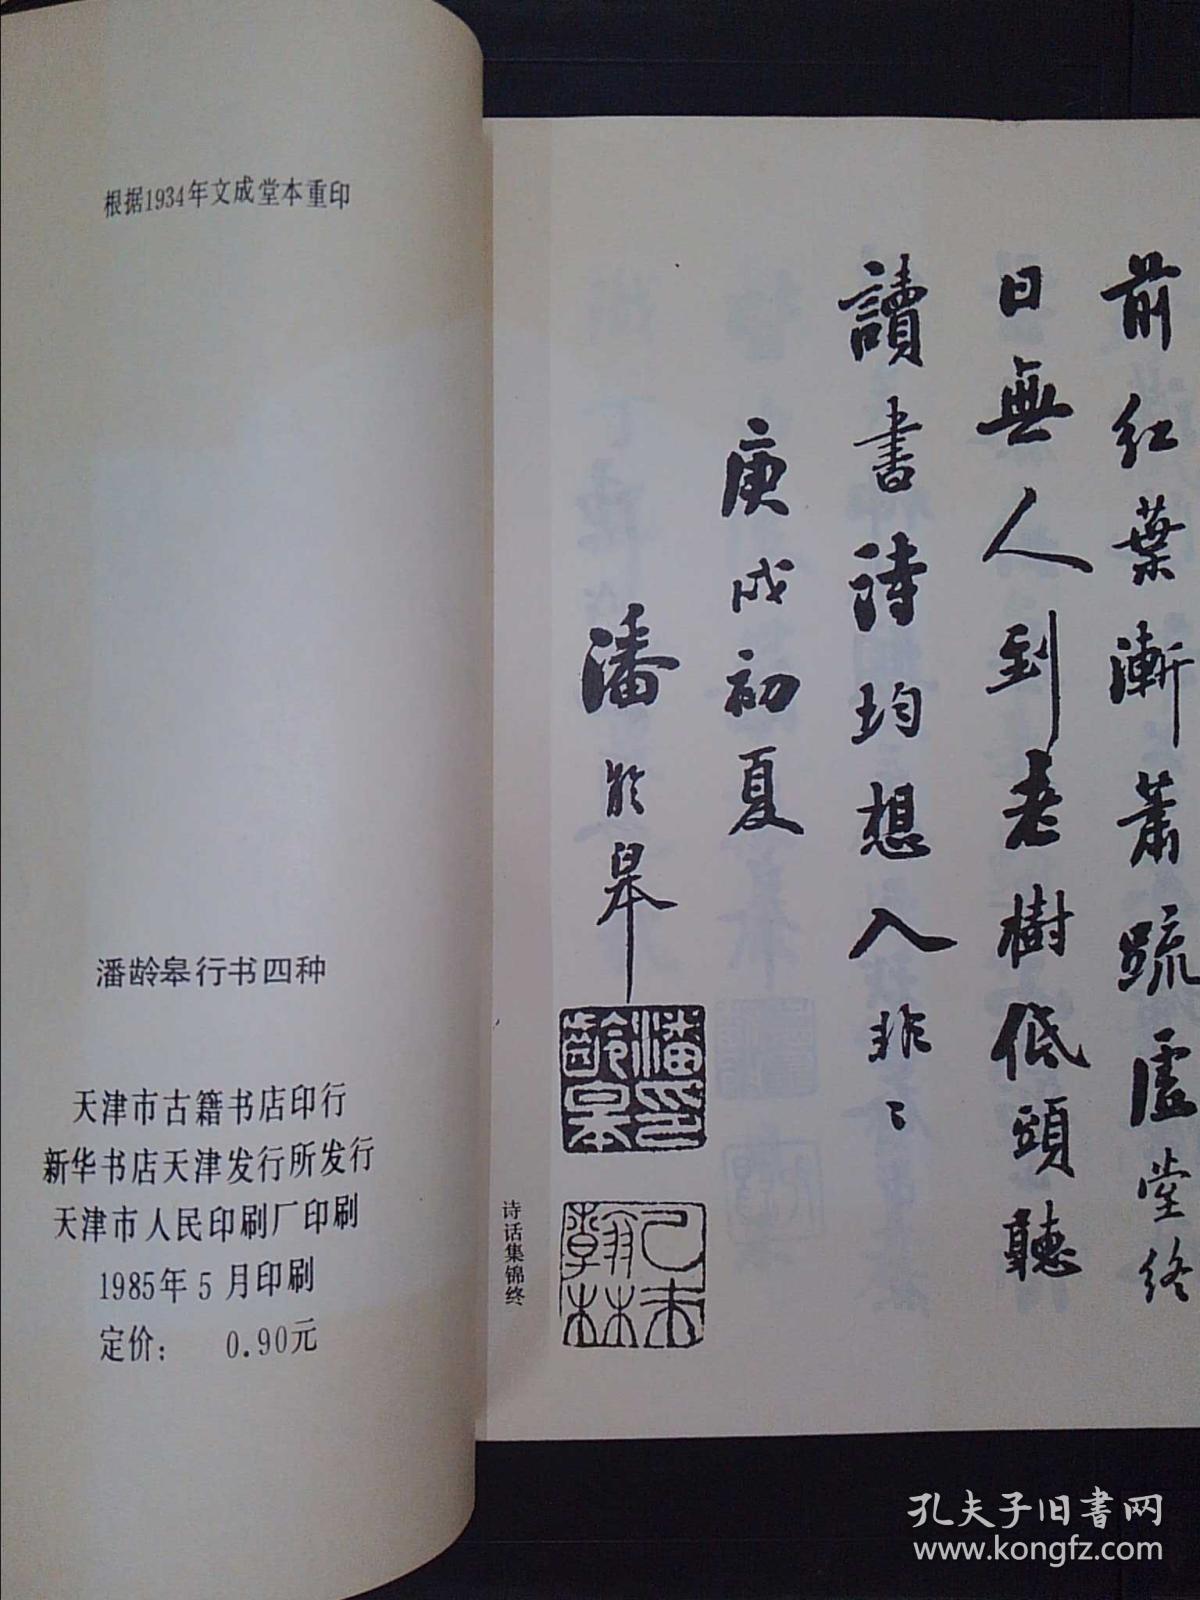 根据1934年文成堂本重印
潘龄皋行书四种
天津市古籍书店印行
新华书店天津发行所发行
天津市人民印刷厂印刷
1985年5月印刷
定价： 0.90元
前红葉漸蕭疏虚堂终
日無人到老樹低頭聽
讀書诗均想入非〻
庚戌初夏
潘龄皋
潘印龄皋
己未翰林
诗话集锦终
孔夫子旧书网
www.kongfz.com